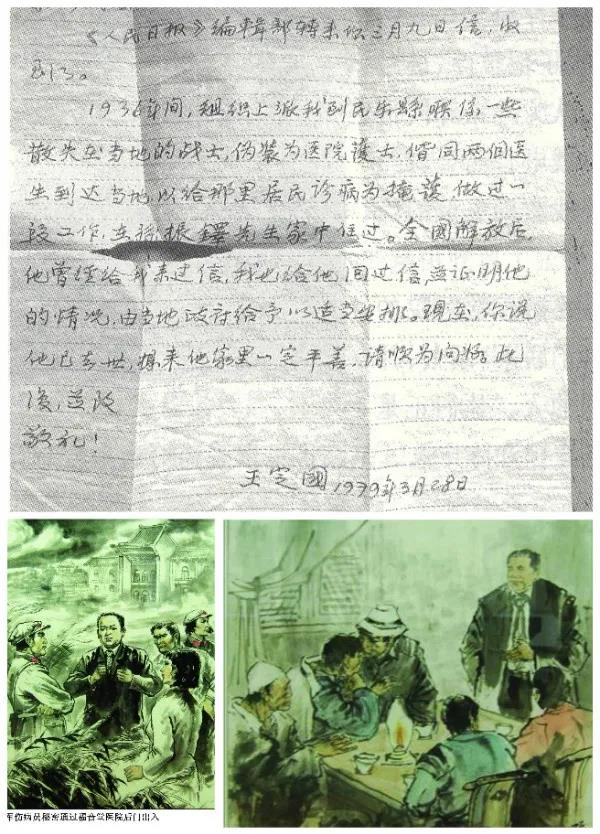 《人民日报》編輯部轉来你三月九日信,收
到了。
1936年间,组织上派我到民乐縣联係一些
散失在当地的战士,伪装为医院護士,偕同两個医
生到达当地以给那里居民诊病为掩護,做过一
段工作,在振鐸先生家中住过。全國解放后,
他曾经给我来过信,我也给他回过信,並证明他
的情况,由当地政府给予以适当安排。现在,你说
他已去世,想来他家里一定平善,请顺为问好。此
復,並致
敬礼!
王定國 1979年3月28日
军伤病员秘密通过福音堂医院后门出入